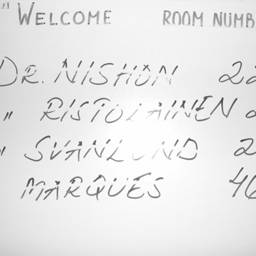 " WELCOME ROOM NUMB
DR. NISHON 22
" RISTOLAINEN 2
" SVANLUND 2
MARQUES 46